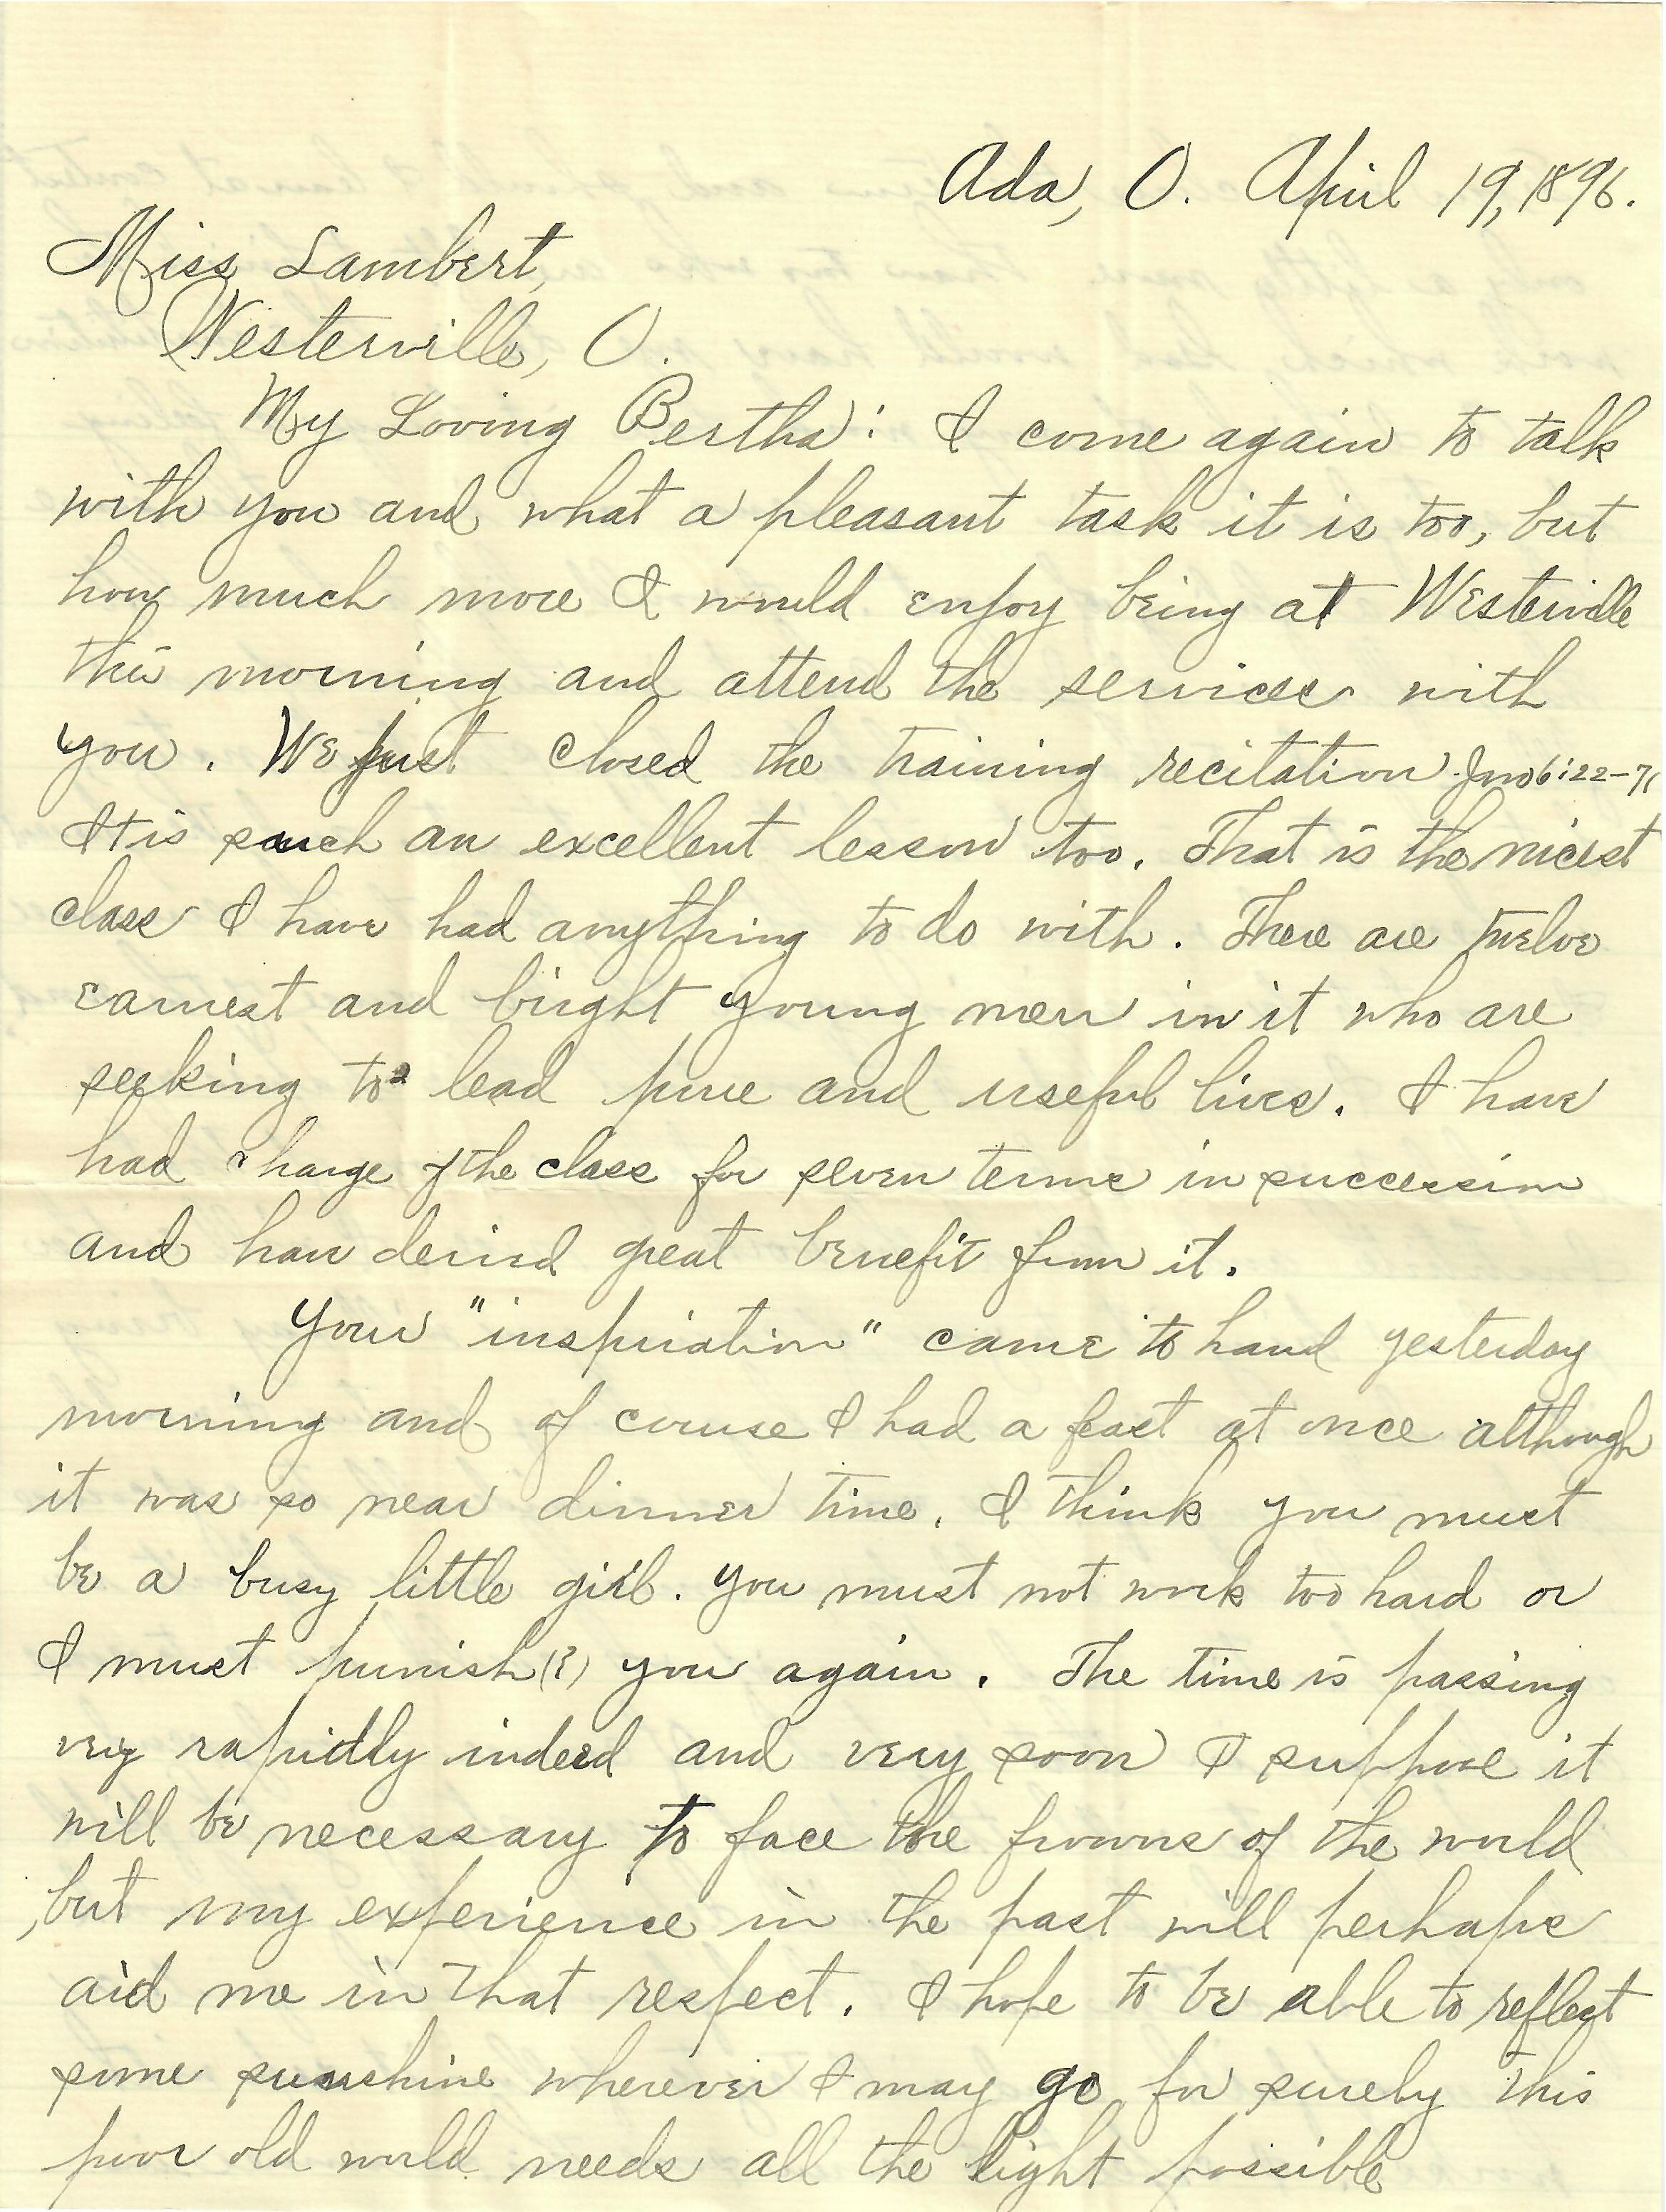 Ada, O. April 19, 1896.
Miss Lambert,
Westerville, O.
My Loving Bertha: I come again to talk
with you and what a pleasant task it is too, but
how much more I would enjoy being at Westerville
this morning and attend the services with
you. We just closed the training recitation Jno 6:22-71
It is such an excellent lesson too. That is the nicest
class I have had anything to do with. There are twelve
earnest and bright young men in it who are
seeking to lead pure and useful lives. I have
had charge of the class for seven terms in succession
and have derived great benefit from it.
Your "inspiration" came to hand yesterday
morning and of course I had a feast at once although
it was so near dinner time. I think you must
be a busy little girl. You must not work too hard or
I must punish (?) you again. The time is passing
very rapidly indeed and very soon I suppose it
will be necessary to face the frowns of the world
, but my experience in the past will perhaps
aid me in that respect. I hope to be able to reflect
some sunshine wherever I may go for surely this
poor old world needs all the light possible